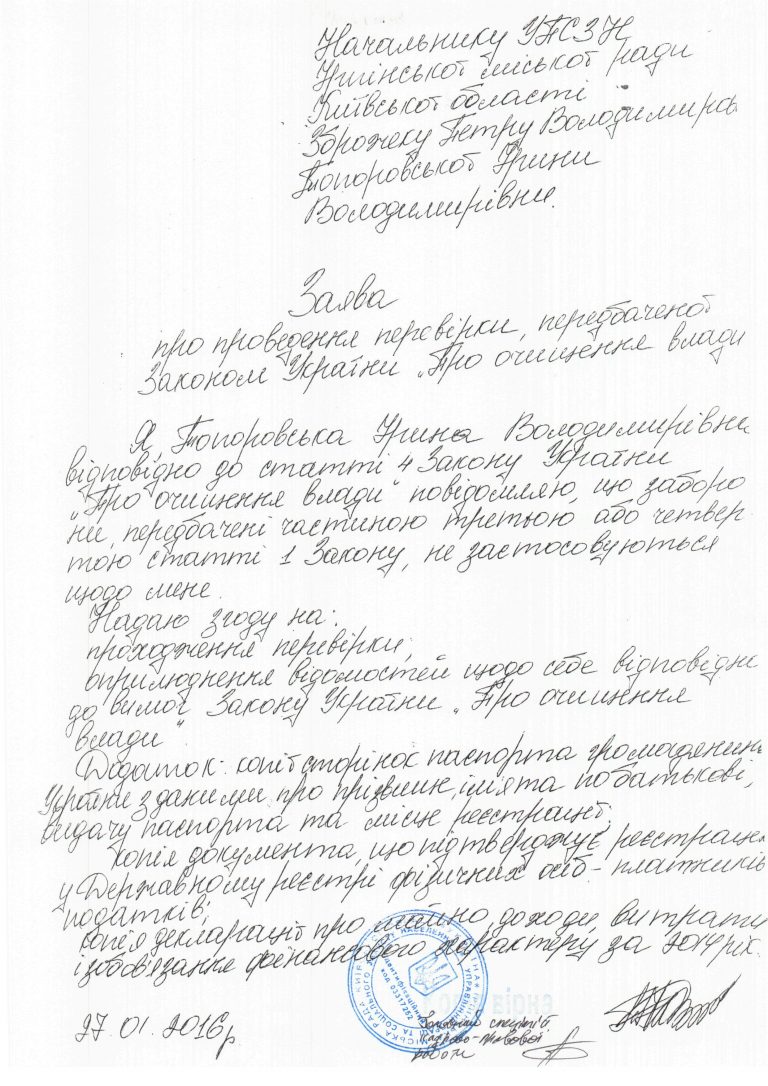 Начальнику УПСЗН
Ірпінської міської ради
Київської області
Зброжеку Петру Володимирови
Топоровської Ірини
Володимирівни.
Заява
про проведення перевірки, передбаченої
Законом України „Про очищення влади
Я, Топоровська Ірина Володимирівна
відповідно до статті 4 Закону України
„Про очищення влади" повідомляю, що заборо
ни, передбачені частиною третьою або четвер
тою статті 1 Закону, не застосовуються
щодо мене.
Надаю згоду на:
проходження перевірки;
оприлюднення відомостей щодо себе відповідно
до вимог Закону України „Про очищення
влади".
Додаток: копії сторінок паспорта громадянина
України з даними про прізвище, ім'я та по батькові,
видачу паспорта та місце реєстрації;
копія документа, що підтверджує реєстрацію
у Державному реєстрі фізичних осіб - платників
податків;
копія декларації про майно, доходи, витрати
і зобов'язання фінансового характеру за 2014 рік.
27.01.2016р
Головний спеціаліст
кадрово-правової
роботи
ідентифікаційний
код 03317252